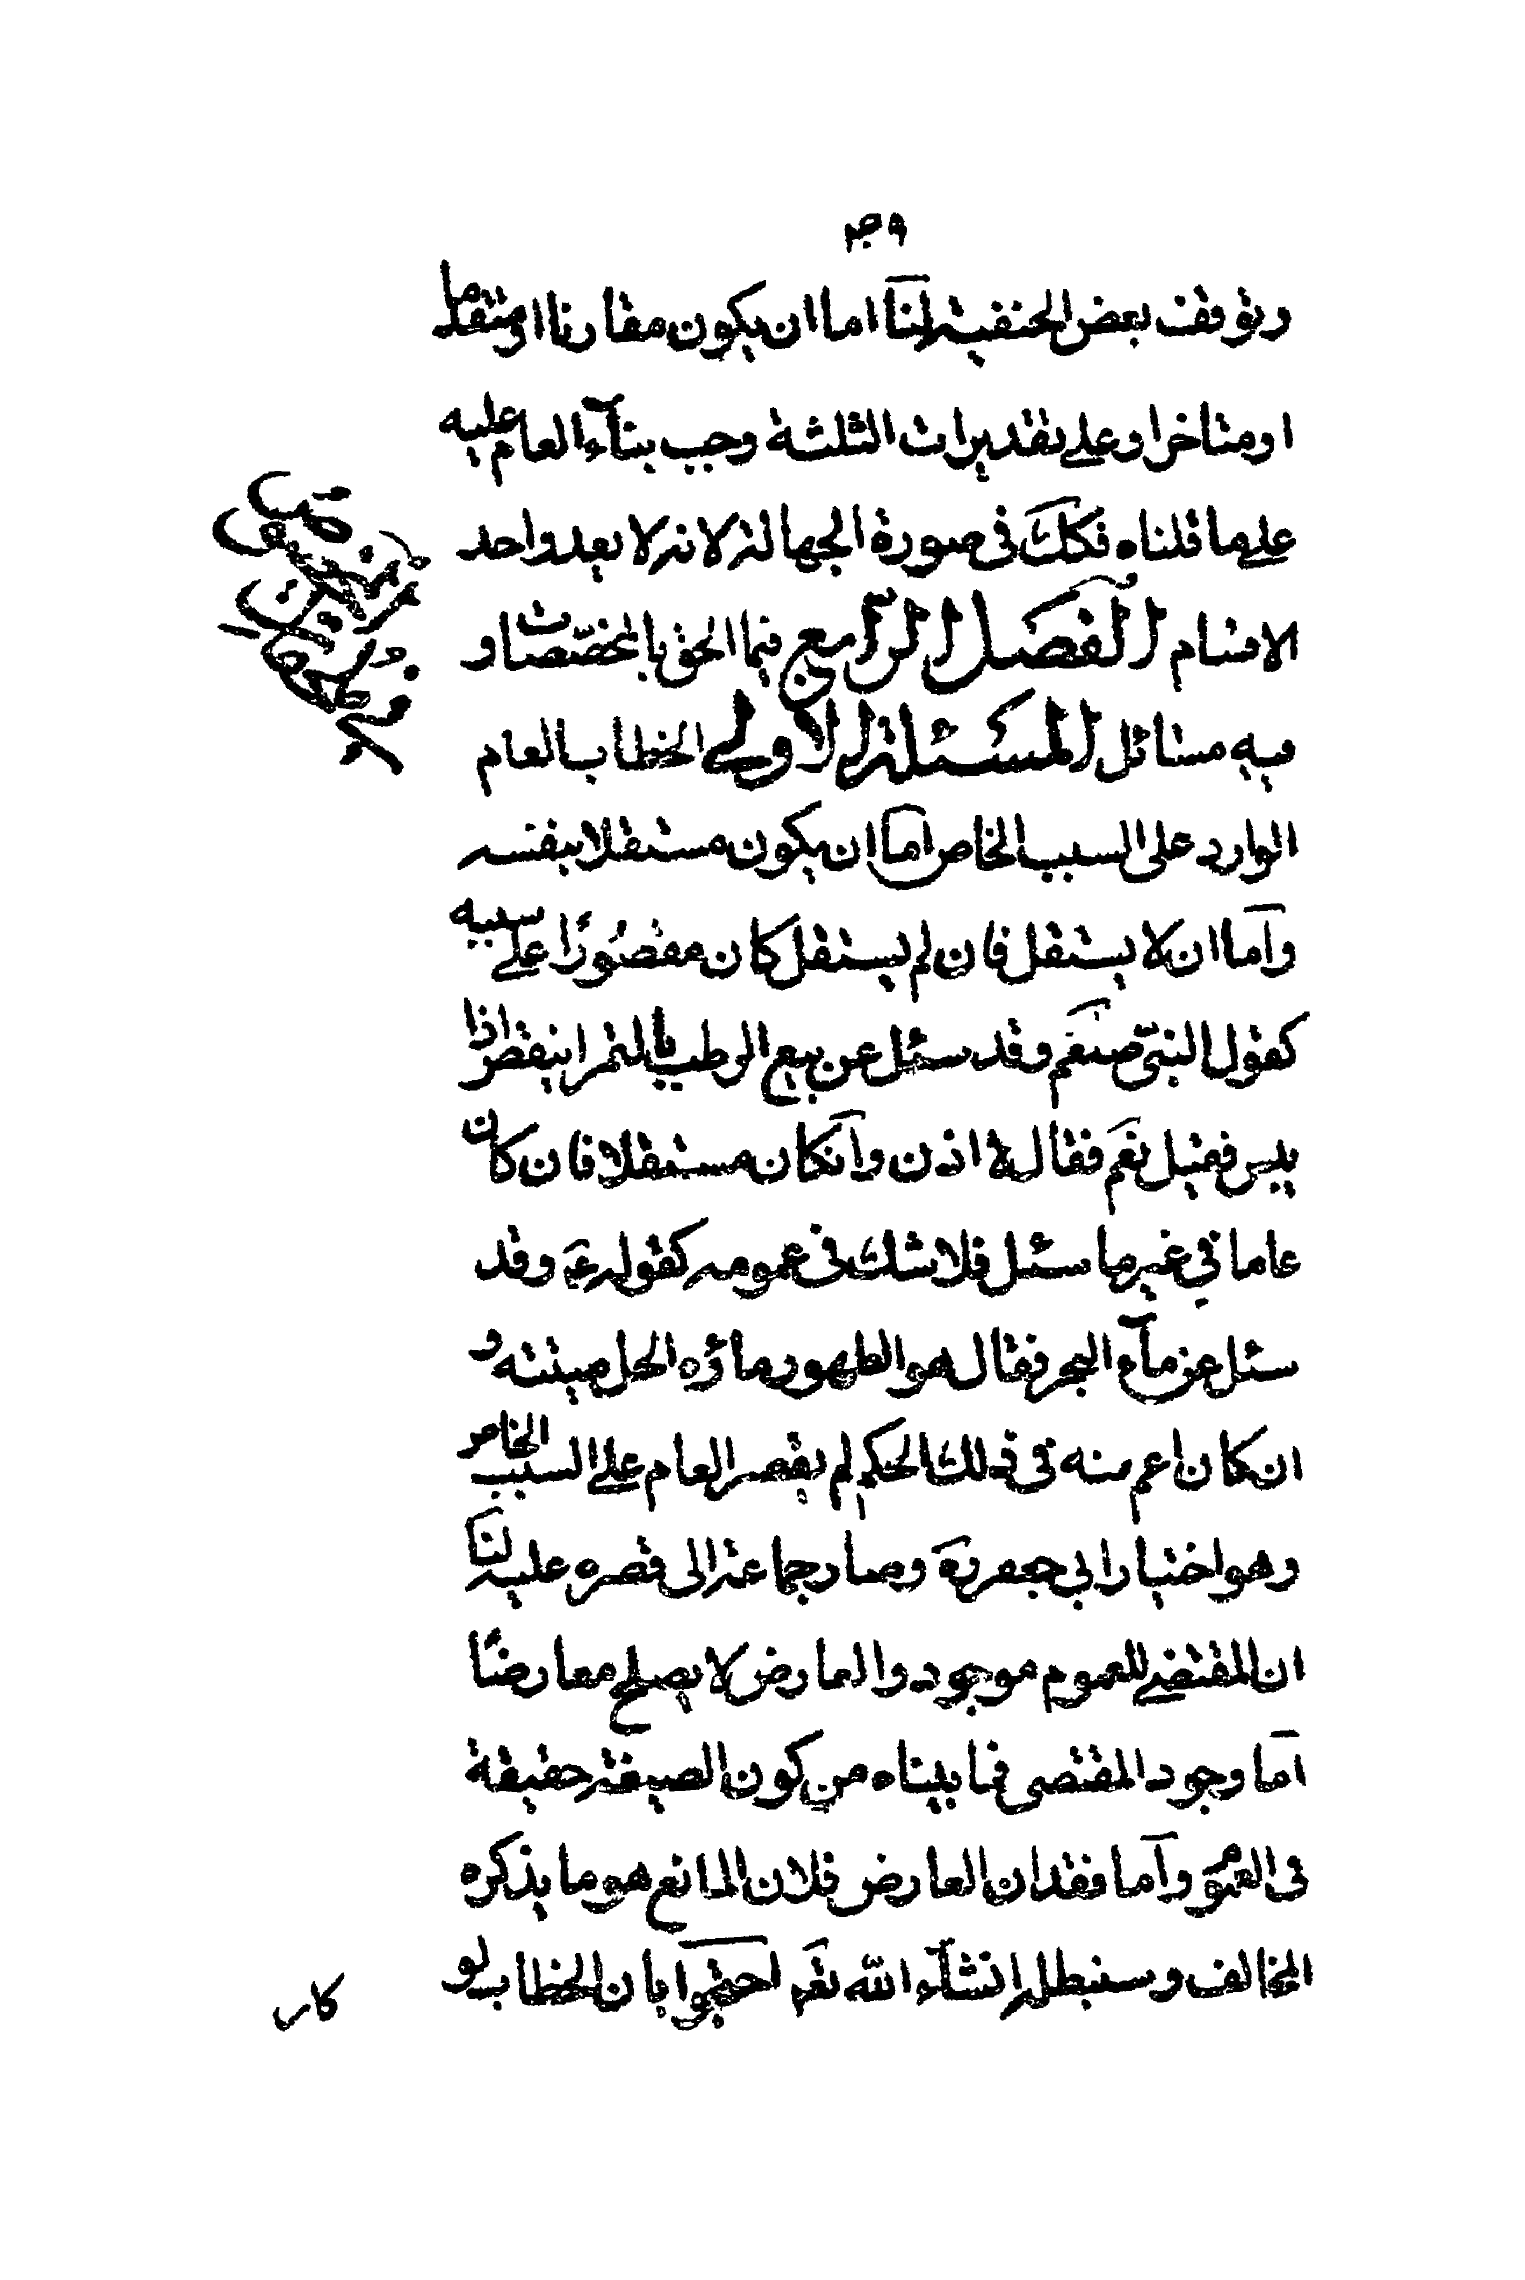 وتوقف بعض الحنفية لنا اما ان يكون مقارنا او متقدما
او متاخرا وعلى تقديرات الثلثة وجب بناء العام عليه
على ما قلناه فكك فى صورة الجهالة لانه لا يعد واحد
الاقسام الفصل الرابع فيما الحق بالمخصصات و
فيه مسائل المسئلة الاولى الخطاب العام
الوارد على السبب الخاص اما ان يكون مستقلا بنفسه
واما ان لا يستقل فان لم يستقل كان مقصورا على سببه
كقول النبى صنعم وقد سئل عن بيع الرطب بالتمر اينقص اذا
يبس فقيل نعم فقال فلا اذن وانكان مستقلا فان كان
عاما في غير ما سئل فلا شك فى عمومه كقوله ع وقد
سئل عن ماء البحر فقال هو الطهور ماؤه الحل ميتته و
ان كان اعم منه فى ذلك الحكم لم يقصر العام على السبب الخاص
وهو اختيار ابي جعفر ره وصار جماعة الى قصره عليه لنا
ان المقتضى للعموم موجود والعارض لا يصلح معارضا
اما وجود المقتضى فما بيناه من كون الصيغة حقيقة
فى العمو واما فقدان العارض فلان المانع هو ما يذكره
المخالف وسنبطله انشاء الله تعم احتجوا بان الخطاب لو
كان